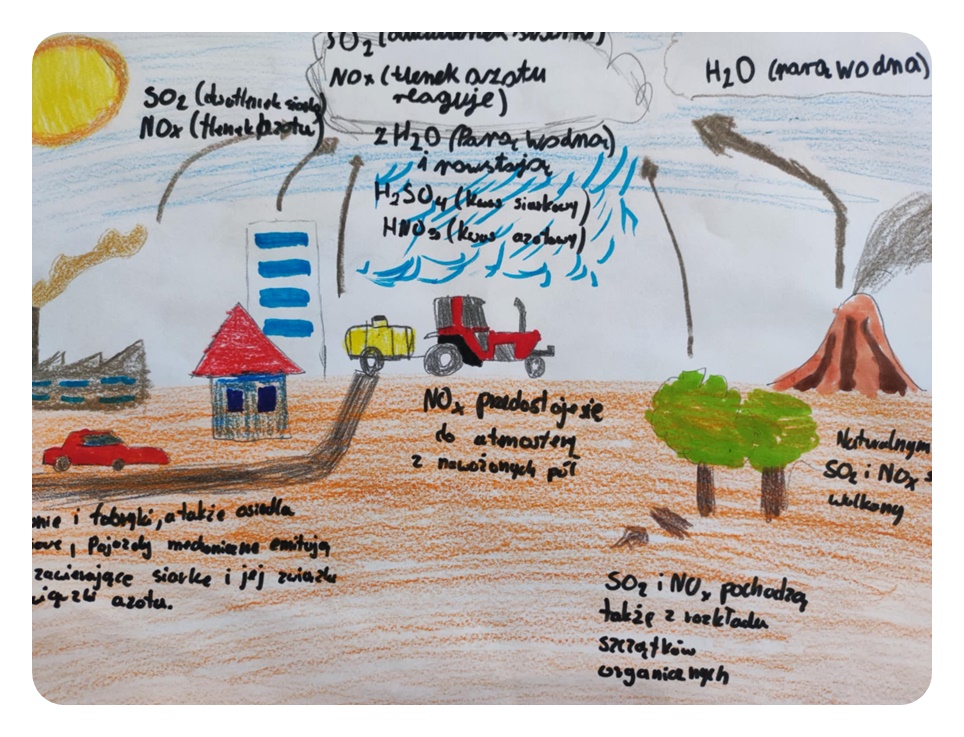 SO2 (dwutlenek siarki)
NOx (tlenek azotu
reaguje)
H2O (para wodna)
SO2 (dwutlenek siarki)
NOx (tlenek azotu)
2 H2O (Parą wodną)
i powstają
H2SO4 (kwas siarkowy)
HNO3 (kwas azotowy)
NOx przedostaje się
do atmosfery
z nawożonych pól
Naturalnym
SO2 i NOx s
wulkany
onie i fabryki, a także osiedla
owe, Pojazdy mechaniczne emitują
zawierające siarkę i jej związki
wiązki azotu.
SO2 i NOx pochodzą
także z rozkładu
szczątków
organicznych